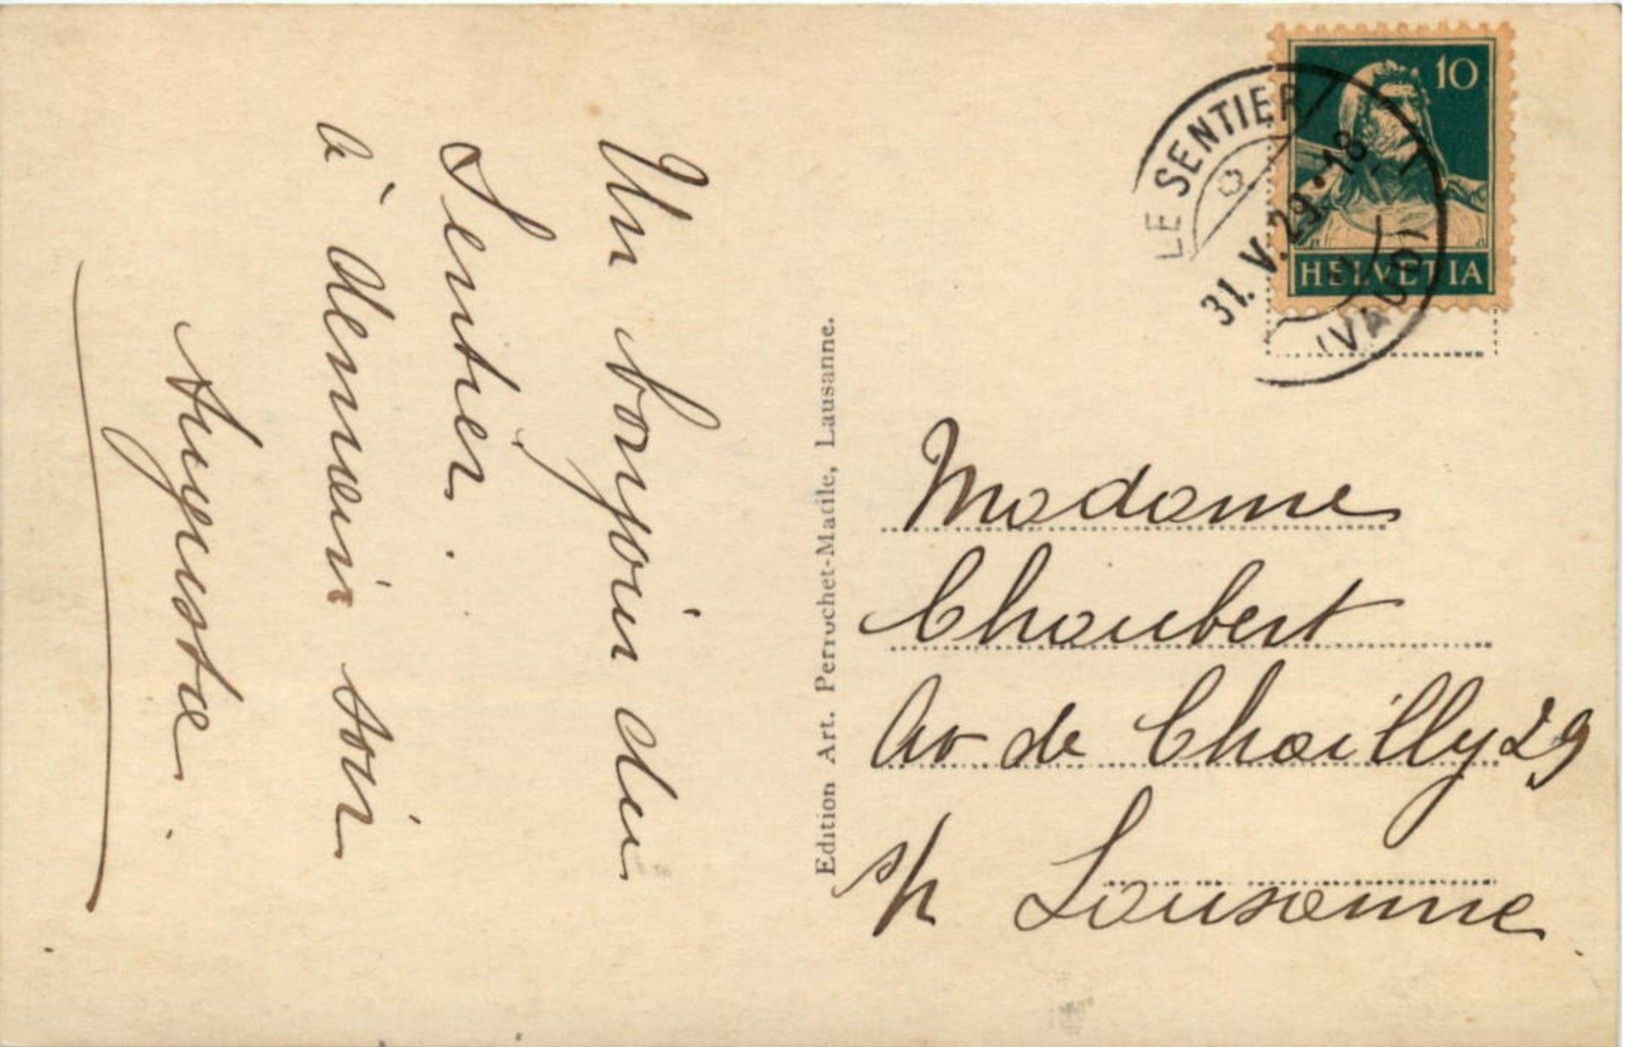 Un bonjour du
Sentier.
à demain soir
Augusta.
Edition Art. Perrochet-Matile, Lausanne.
10
HELVETIA
LE SENTIER
31. V. 29.-18
(VAUD)
Madame
Choubert
Av de Chailly 29
s/h Lausanne